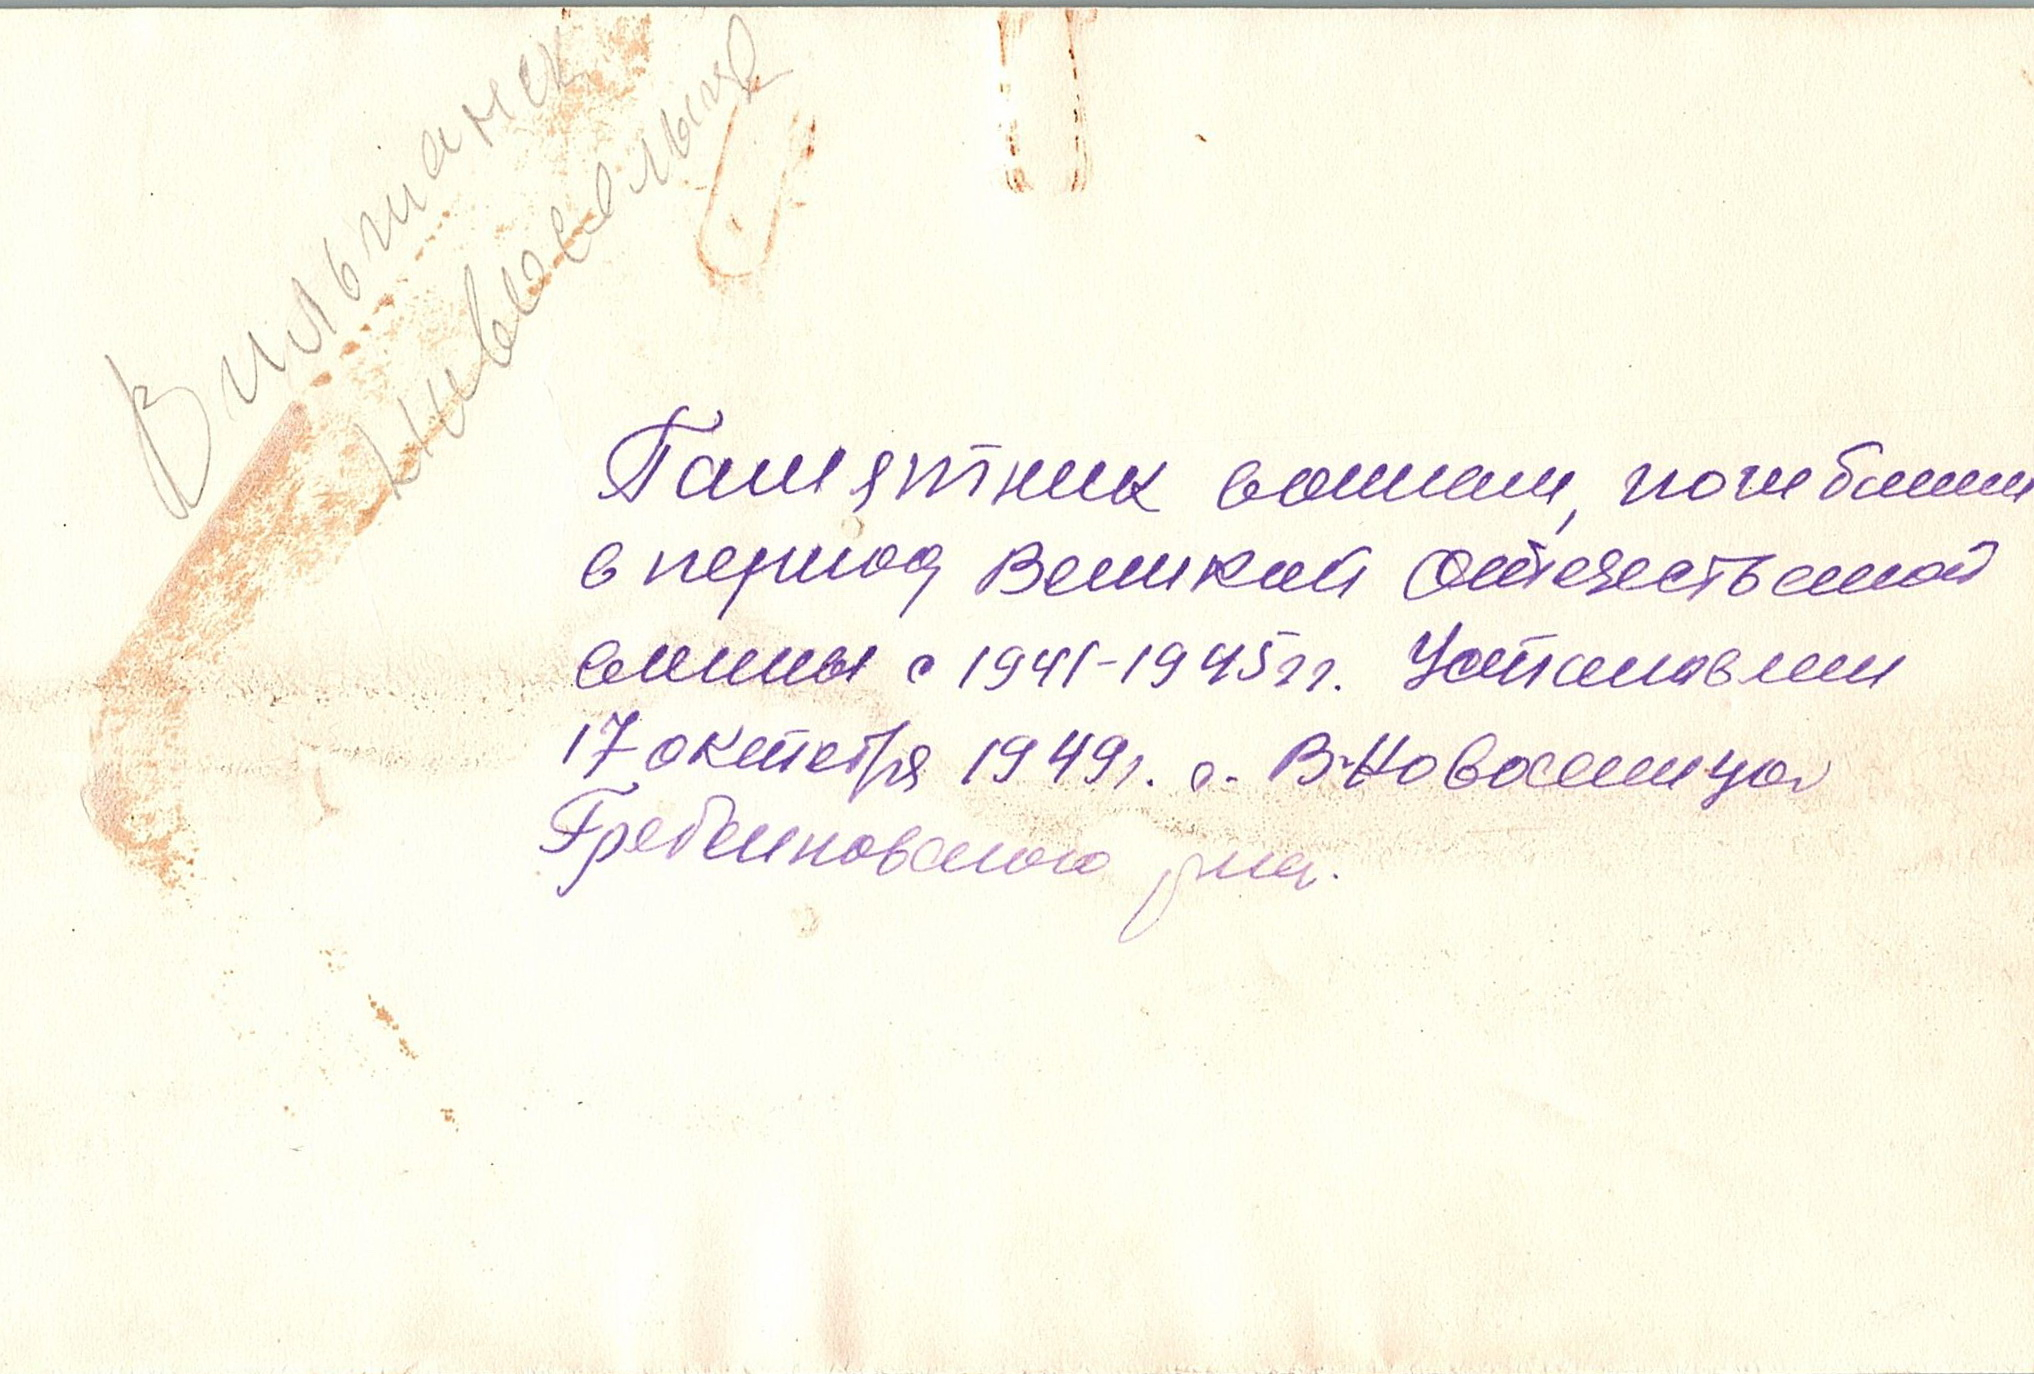 Вильшанск
Памятник воинам, погибшим
в период Великой Отечественной
войны с 1941-1945 гг. Установлен
17 октября 1949 г. с. В-Новоселица
Гребенковского р-на.